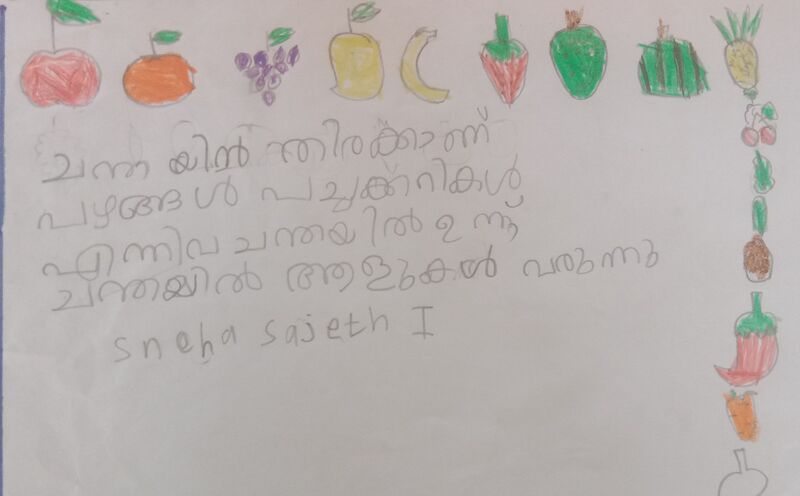 ചന്ത യിൽ തിരക്കാണ്
പഴങ്ങൾ പച്ചക്കറികൾ
എന്നിവ ചന്തയിൽ ഉന്ന്
ചന്തയിൽ ആളുകൾ വരുന്നു
sneha sajeth I